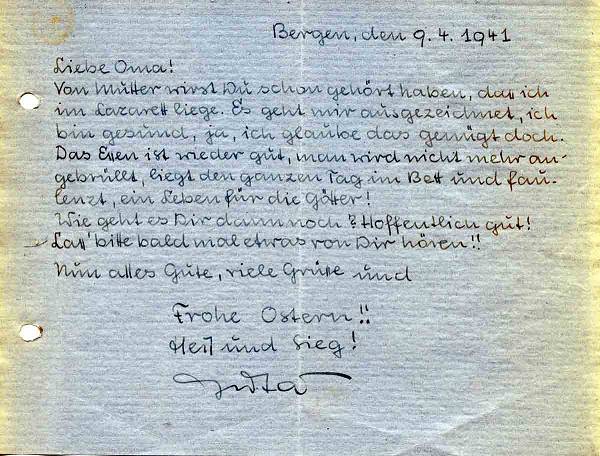 Bergen, den 9. 4. 1941
Liebe Oma!
Von Mutter wirst Du schon gehört haben, daß ich
im Lazarett liege. Es geht mir ausgezeichnet, ich
bin gesund, ja, ich glaube das genügt doch.
Das Essen ist wieder gut, man wird nicht mehr an-
gebrüllt, liegt den ganzen Tag im Bett und fau-
lenzt, ein Leben für die Götter!
Wie geht es Dir denn noch? Hoffentlich gut!
Laß bitte bald mal etwas von Dir hören!!
Nun alles Gute, viele Grüße und
Frohe Ostern!!
Heil und Sieg!